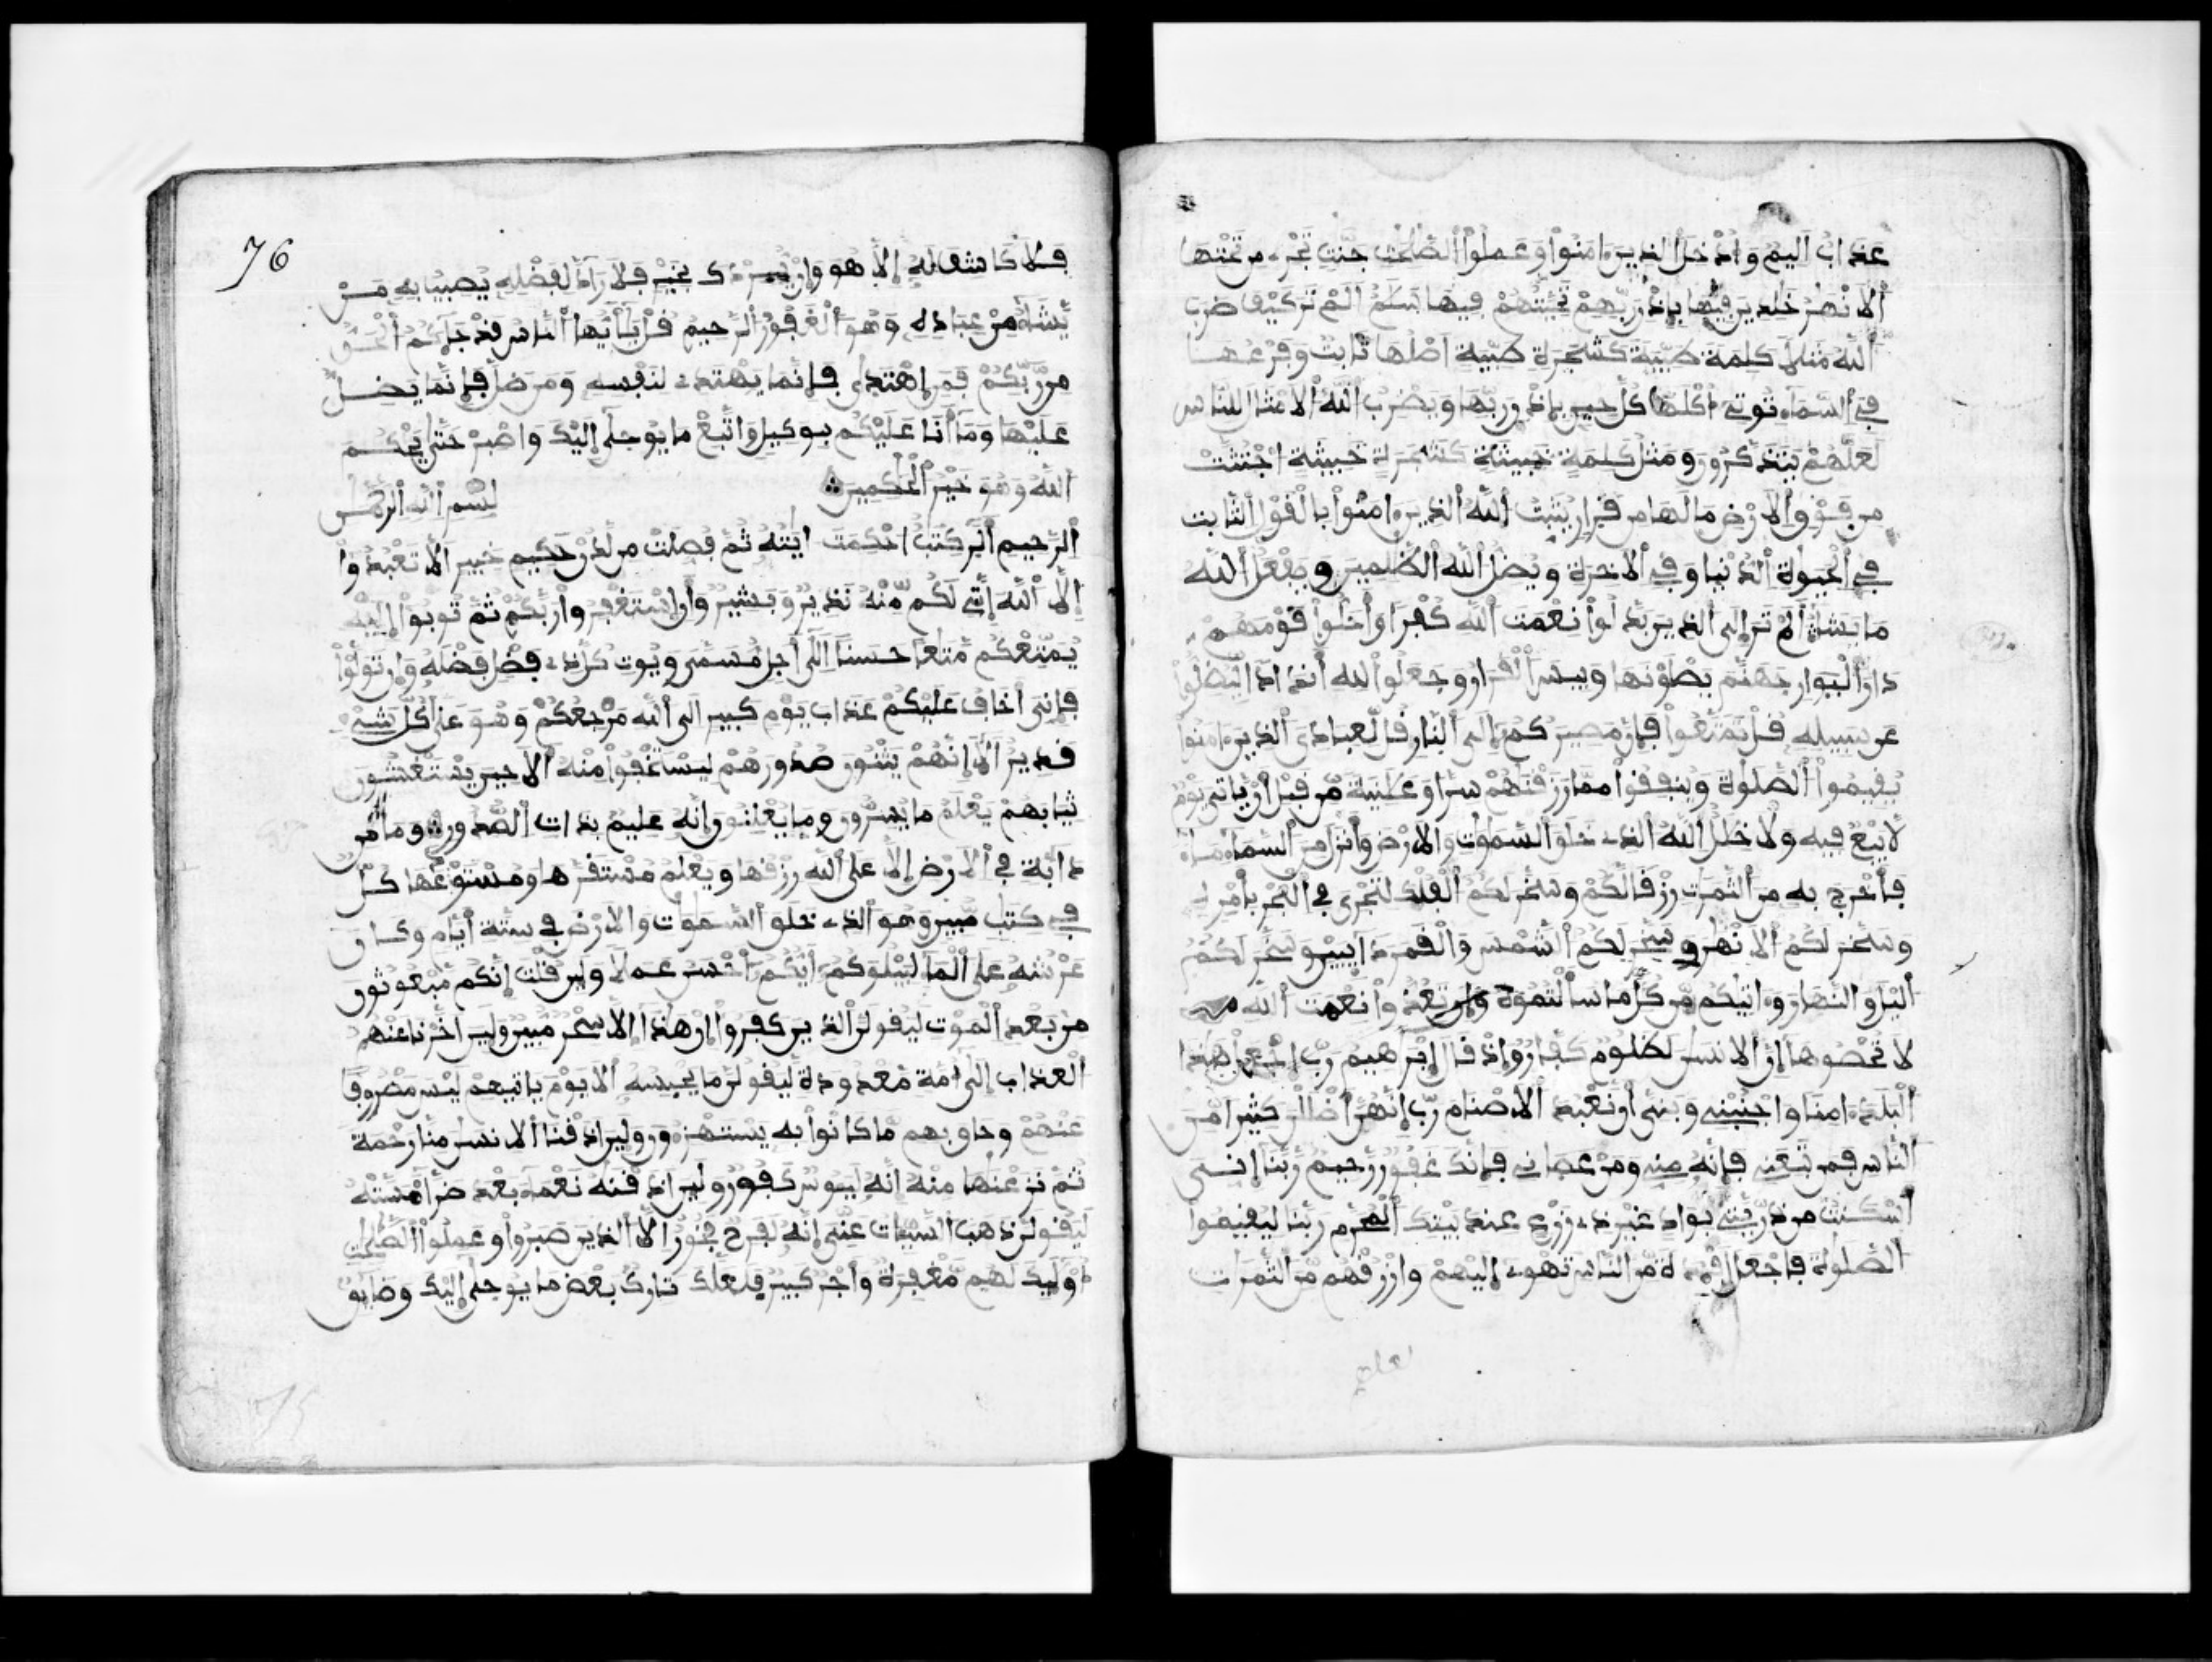 عذاب اليم وادخل الذين ءامنوا وعملوا الصلحت جنت تجرے من تحتها
الانهر خلدين فيها باذن ربهم تحيتهم فيها سلم الم تر كيف ضرب
الله مثلا كلمة طيبة كشجرة طيبة اصلها ثابت وفرعها
في السماء توتے اكلها كل حين باذن ربها ويضرب الله الامثال للناس
لعلهم يتذكرون ومثل كلمة خبيثة كشجرة خبيثة اجتثت
من فوق الارض مالها من قرار يثبت الله الذين ءامنوا بالقول الثابت
في الحيوة الدنيا وفي الاخرة ويضل الله الظلمين ويفعل الله
ما يشاء الم تر الى الذين بدلوا نعمت الله كفرا واحلوا قومهم
دار البوار جهنم يصلونها وبيس القرار وجعلوا لله اندادا ليضلوا
عن سبيله قل تمتعوا فان مصيركم الى النار قل لعبادى الذين ءامنوا
يقيموا الصلوة وينفقوا مما رزقنهم سرا وعلنية من قبل ان ياتي يوم
لا بيع فيه ولا خلل الله الذے خلق السموت والارض وانزل من السماء ماء
فاخرج به من الثمرت رزقا لكم وسخر لكم الفلك لتجرى في البحر بامره
وسخر لكم الانهر وسخر لكم الشمس والقمر دايبين وسخر لكم
اليل والنهار وءاتيكم من كل ما سالتموه وان تعدوا نعمت الله
لا تحصوها ان الانسن لظلوم كفار واذ قال ابرهيم رب اجعل هذا
البلد ءامنا واجنبني وبني ان نعبد الاصنام رب انهن اضللن كثيرا من
الناس فمن تبعني فانه مني ومن عصاني فانك غفور رحيم ربنا اني
اسكنت من ذريتي بواد غير ذے زرع عند بيتك المحرم ربنا ليقيموا
الصلوة فاجعل افـدة من الناس تهوے اليهم وارزقهم من الثمرات
لعلهم
76
فلا كاشف له الا هو وان يردك بخير فلا راد لفضله يصيب به من
يشاء من عباده وهو الغفور الرحيم قل يايها الناس قد جاءكم الحق
من ربكم فمن اهتدى فانما يهتدے لنفسه ومن ضل فانما يضل
عليها وما انا عليكم بوكيل واتبع ما يوحى اليك واصبر حتى يحكم
الله وهو خير الحكمين بسم الله الرحمن
الرحيم الر كتب احكمت ايته ثم فصلت من لدن حكيم خبير الا تعبدوا
الا الله انني لكم منه نذير وبشير وان استغفروا ربكم ثم توبوا اليه
يمتعكم متعا حسنا الى اجل مسمى ويوت كل ذے فضل فضله وان تولوا
فاني اخاف عليكم عذاب يوم كبير الى الله مرجعكم وهو على كل شے
قدير الا انهم يثنون صدورهم ليستخفوا منه الا حين يستغشون
ثيابهم يعلم ما يسرون وما يعلنون انه عليم بذات الصدور وما من
دابة في الارض الا على الله رزقها ويعلم مستقرها ومستودعها كل
في كتب مبين وهو الذے خلق السموت والارض في ستة ايام وكان
عرشه على الما ليبلوكم ايكم احسن عملا ولين قلت انكم مبعوثون
من بعد الموت ليقولن الذين كفروا ان هذا الا سحر مبين ولين اخرنا عنهم
العذاب الى امة معدودة ليقولن ما يحبسه الا يوم ياتيهم ليس مصروفا
عنهم وحاق بهم ما كانوا به يستهزءون ولين اذقنا الانسن منا رحمة
ثم نزعنها منه انه ليوس كفور ولين اذقنه نعماء بعد ضراء مسته
ليقولن ذهب السيات عني انه لفرح فخور الا الذين صبروا وعملوا الصلحت
اوليك لهم مغفرة واجر كبير فلعلك تارك بعض ما يوحى اليك وضايق